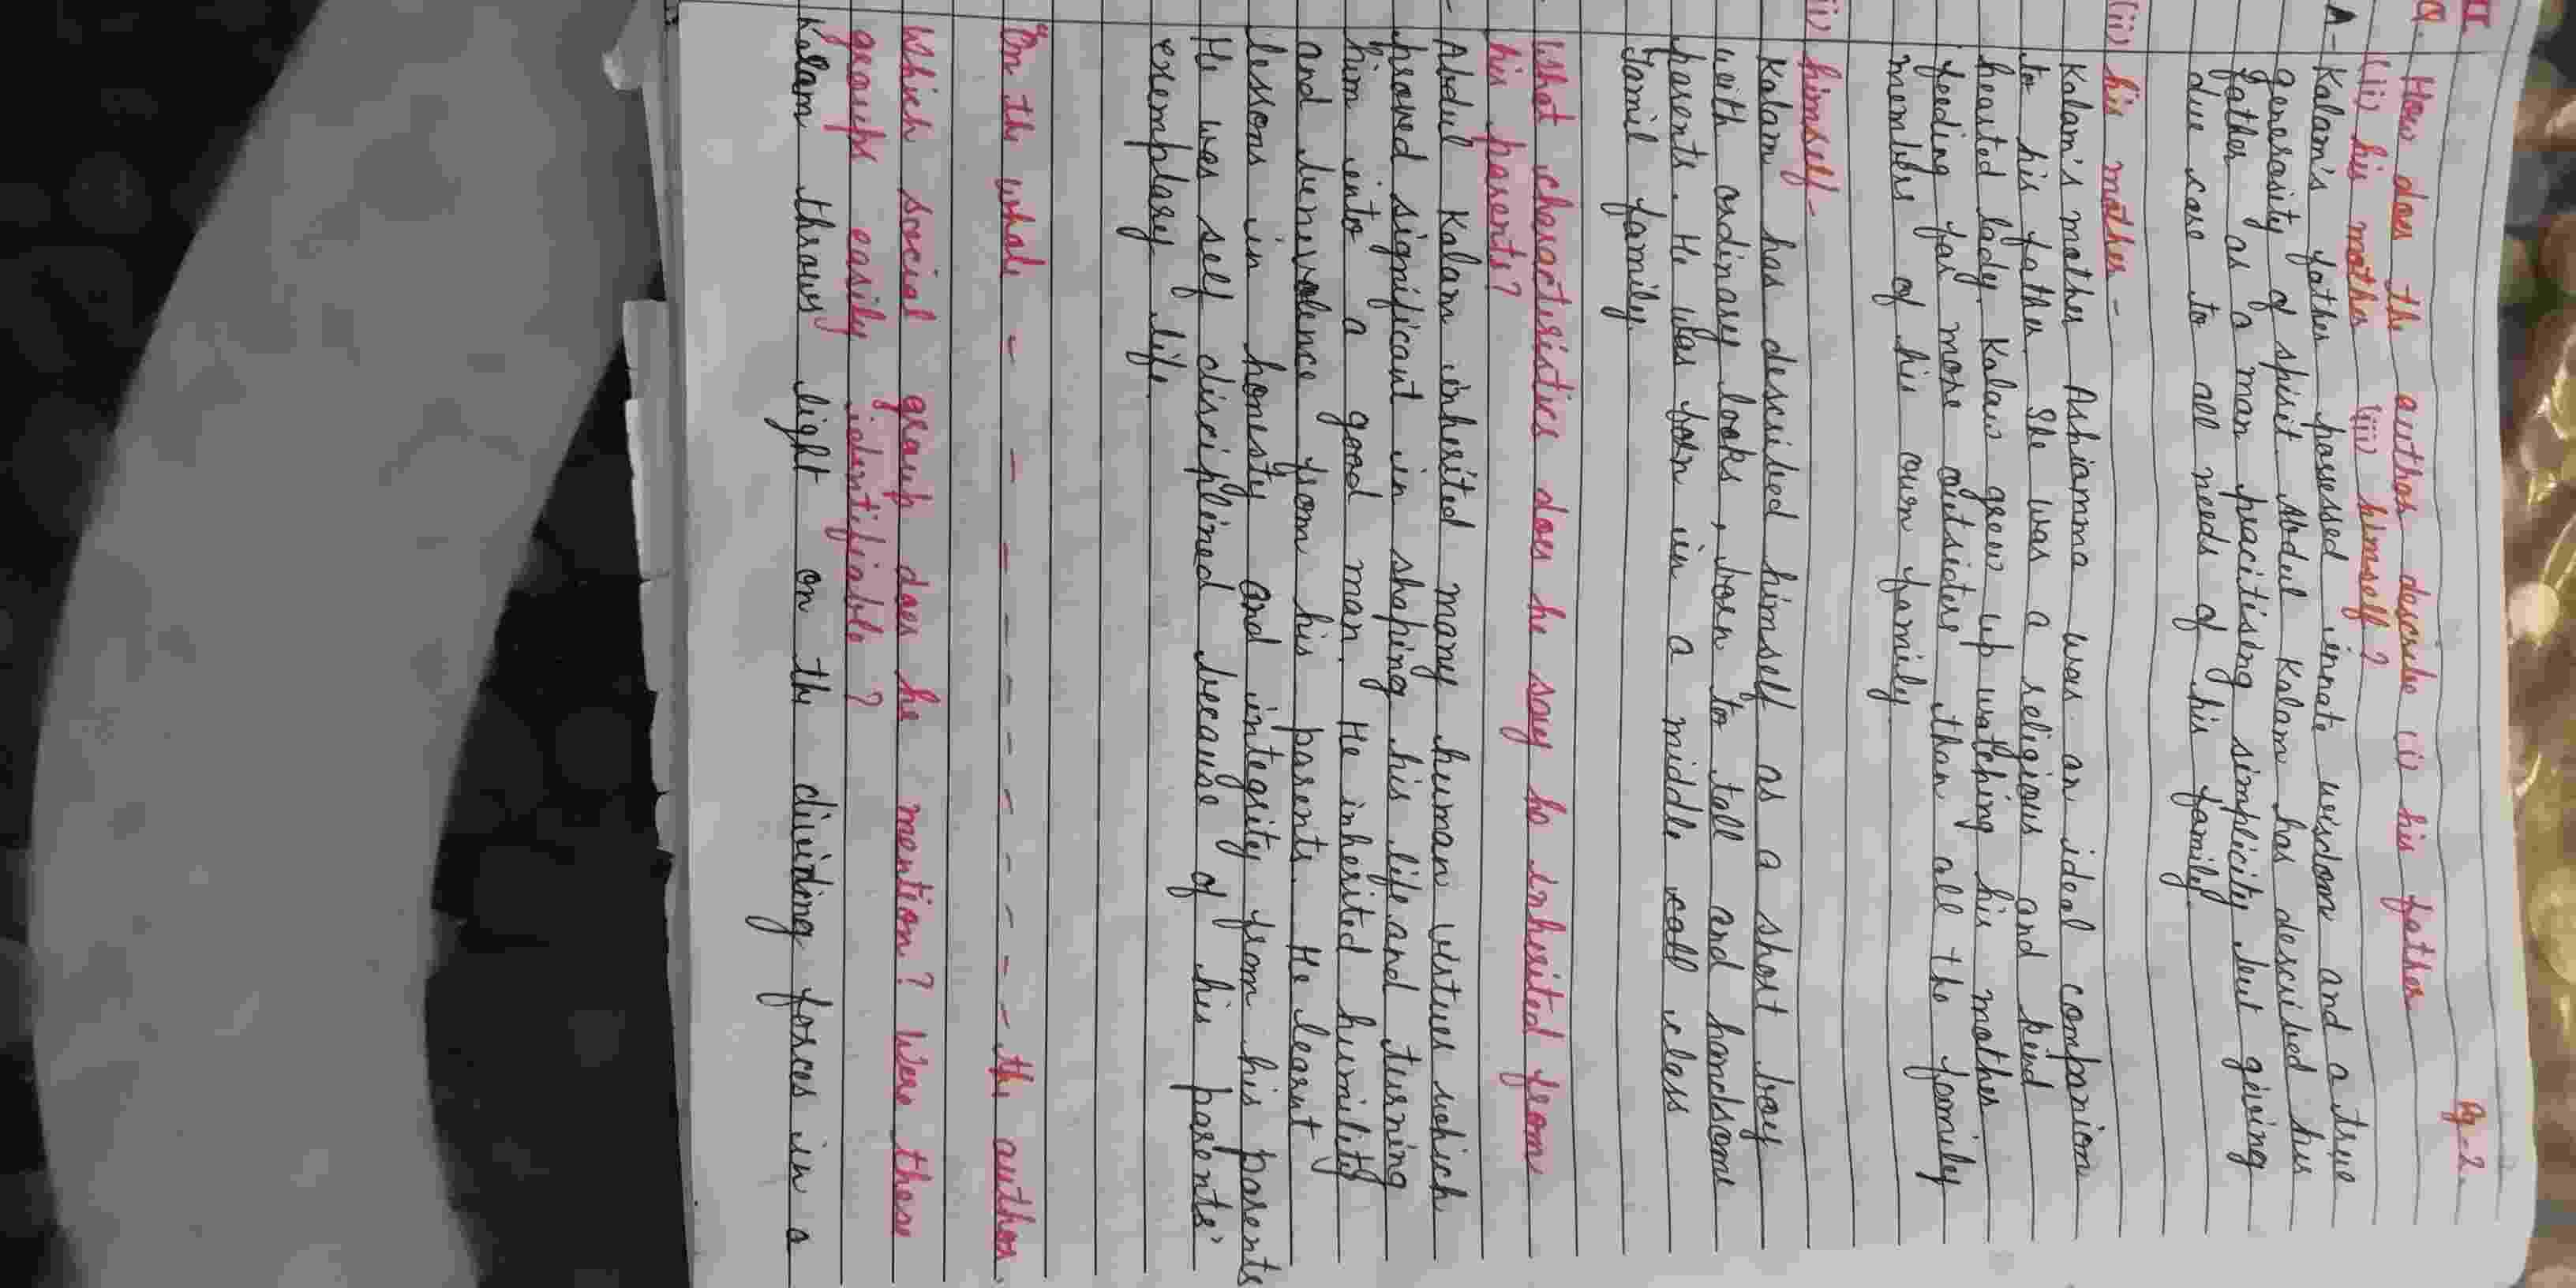 Pg-2.
II.
Q. How does the author describe (i) his father
(ii) his mother (iii) himself?
A- Kalam's father possessed innate wisdom and a true
generosity of spirit. Abdul Kalam has described his
father as a man practising simplicity but giving
due care to all needs of his family.
(ii) his mother -
Kalam's mother Ashiamma was an ideal companion
to his father. She was a religious and kind
hearted lady. Kalam grew up watching his mother
feeding far more outsiders than all the family
members of his own family.
ii) himself-
Kalam has described himself as a short boy
with ordinary looks, born to tall and handsome
parents. He was born in a middle call class
Tamil family.
What characteristics does he say he inherited from
his parents?
- Abdul Kalam inherited many human virtues which
proved significant in shaping his life and turning
him into a good man. He inherited humility
and benevolence from his parents. He learnt
lessons in honesty and integrity from his parents
He was self disciplined because of his parents'
exemplary life.
"On the whole - - - - - - - - the author.
Which social group does he mention? Were these
groups easily identifiable?
Kalam throws light on the dividing forces in a